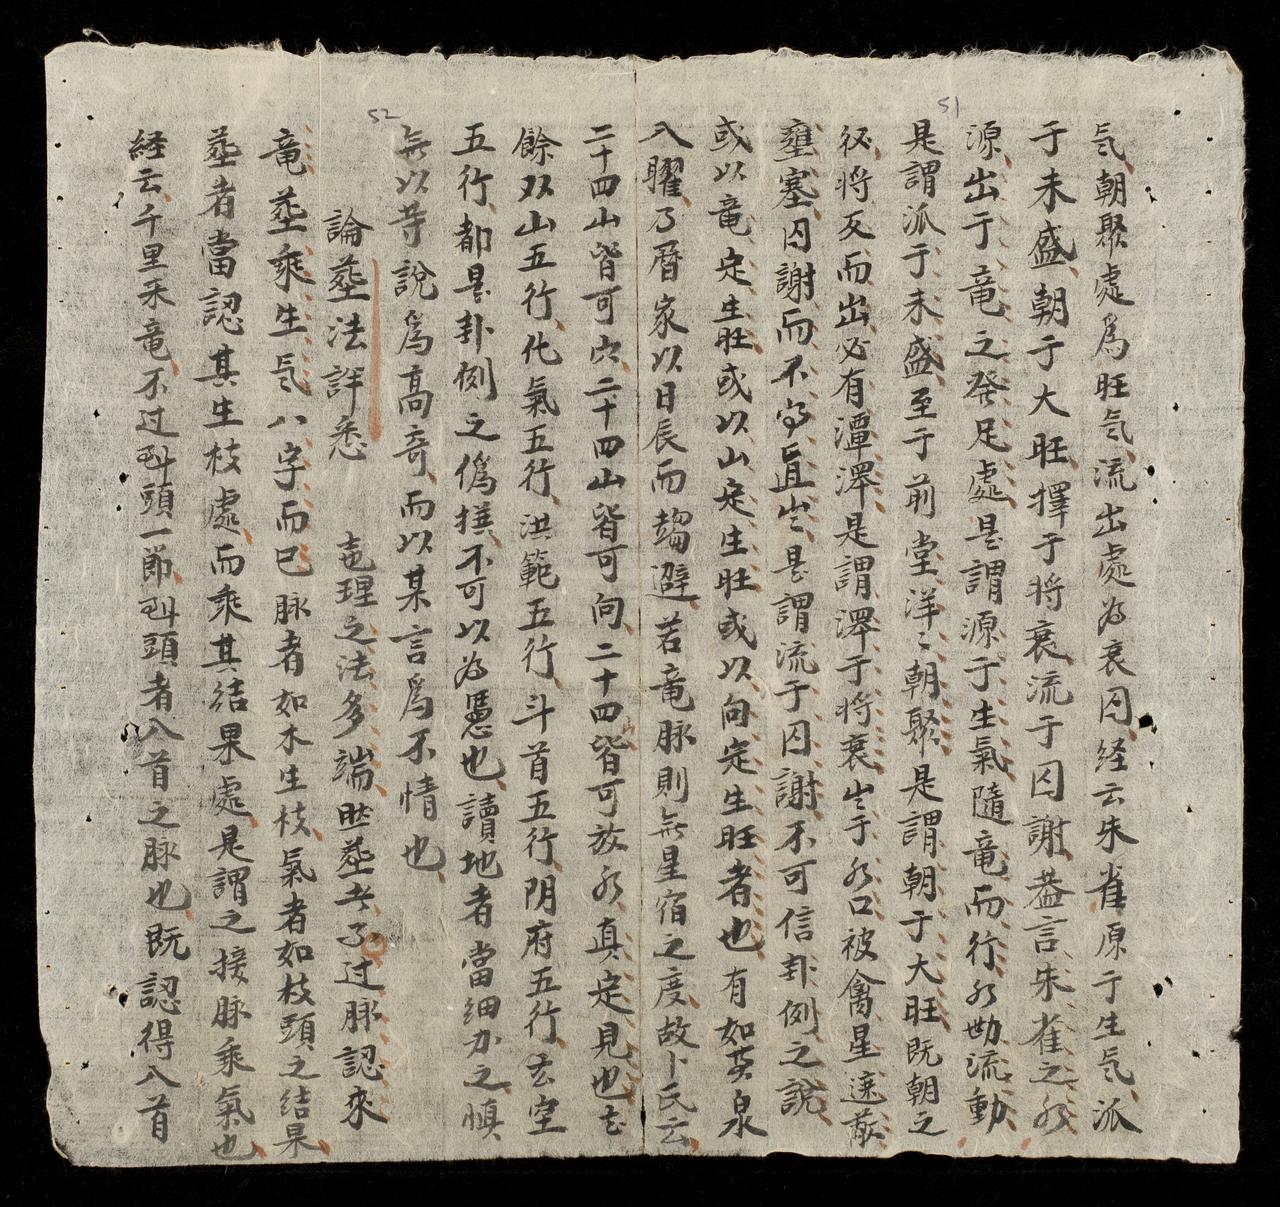 气朝聚處爲旺气流出處为衰囚経云朱雀原于生气派
于未盛朝于大旺擇于将衰流于囚謝蓋言朱雀之水
源出于竜之發足處是謂源于生氣隨竜而行水勢流動
是謂派于未盛至于前堂洋〻朝聚是謂朝于大旺既朝之
後将反而出必有潭澤是謂澤于将衰出于水口被禽星遮
壅塞囚謝而不見直出是謂流于囚謝不可信卦例之說
或以竜定生旺或以山定生旺或以向定生旺者也有如黃泉
八曜乃曆家以日辰而趨避若竜脉則無星宿之度故卜氏云
二十四山皆可穴二十四山皆可向二十四皆可放水真定見也
餘双山五行化氣五行洪範五行斗首五行阴府五行玄空
五行都是卦例之僞撰不可以为憑也讀地者當細办之慎
無以等說爲高奇而以某言爲不情也
論塟法詳悉
地理之法多端然塟者了过脉認來
竜塟乘生气八字而已脉者如木生枝氣者如枝頭之結果
塟者當認其生枝處而乘其結果處是謂之接脉乘氣也
経云千里来竜不过到頭一節到頭者入首之脉也既認得入首
51
52